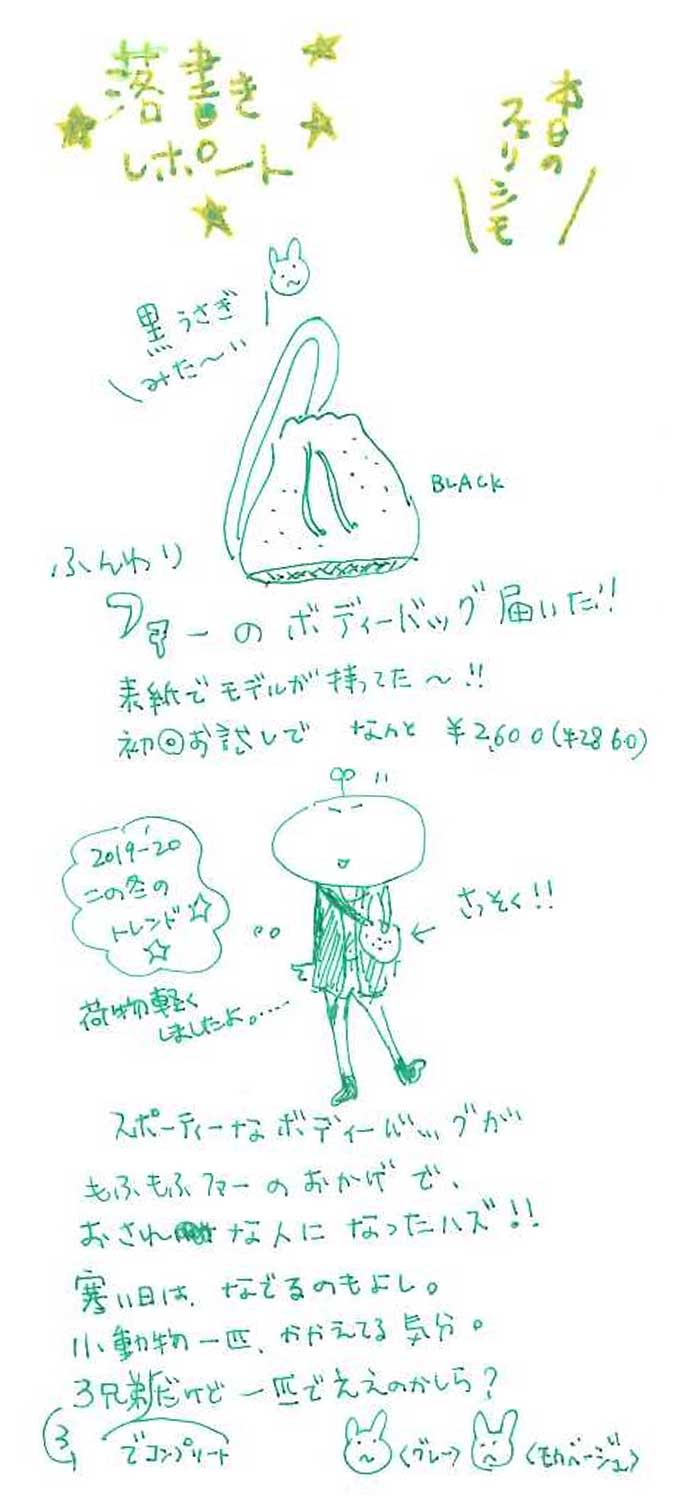 落書き
レポート
本日の
フェリシモ
黒うさぎ
みた〜い
BLACK
ふんわり
ファーのボディーバッグ届いた!!
表紙でモデルが持ってた〜!!
初回お試しで なんと ¥2,600(¥2860)
2019-20
この冬の
トレンド☆
☆
さっそく!!
荷物軽く
しましたよ。……
スポーティーなボディーバッグが
もふもふファーのおかげで、
おされな人になったハズ!!
寒い日は、なでるのもよし。
小動物一匹、かかえてる気分。
3兄弟だけど一匹でええのかしら?
3
でコンプリート
〈グレー〉
〈モカベージュ〉